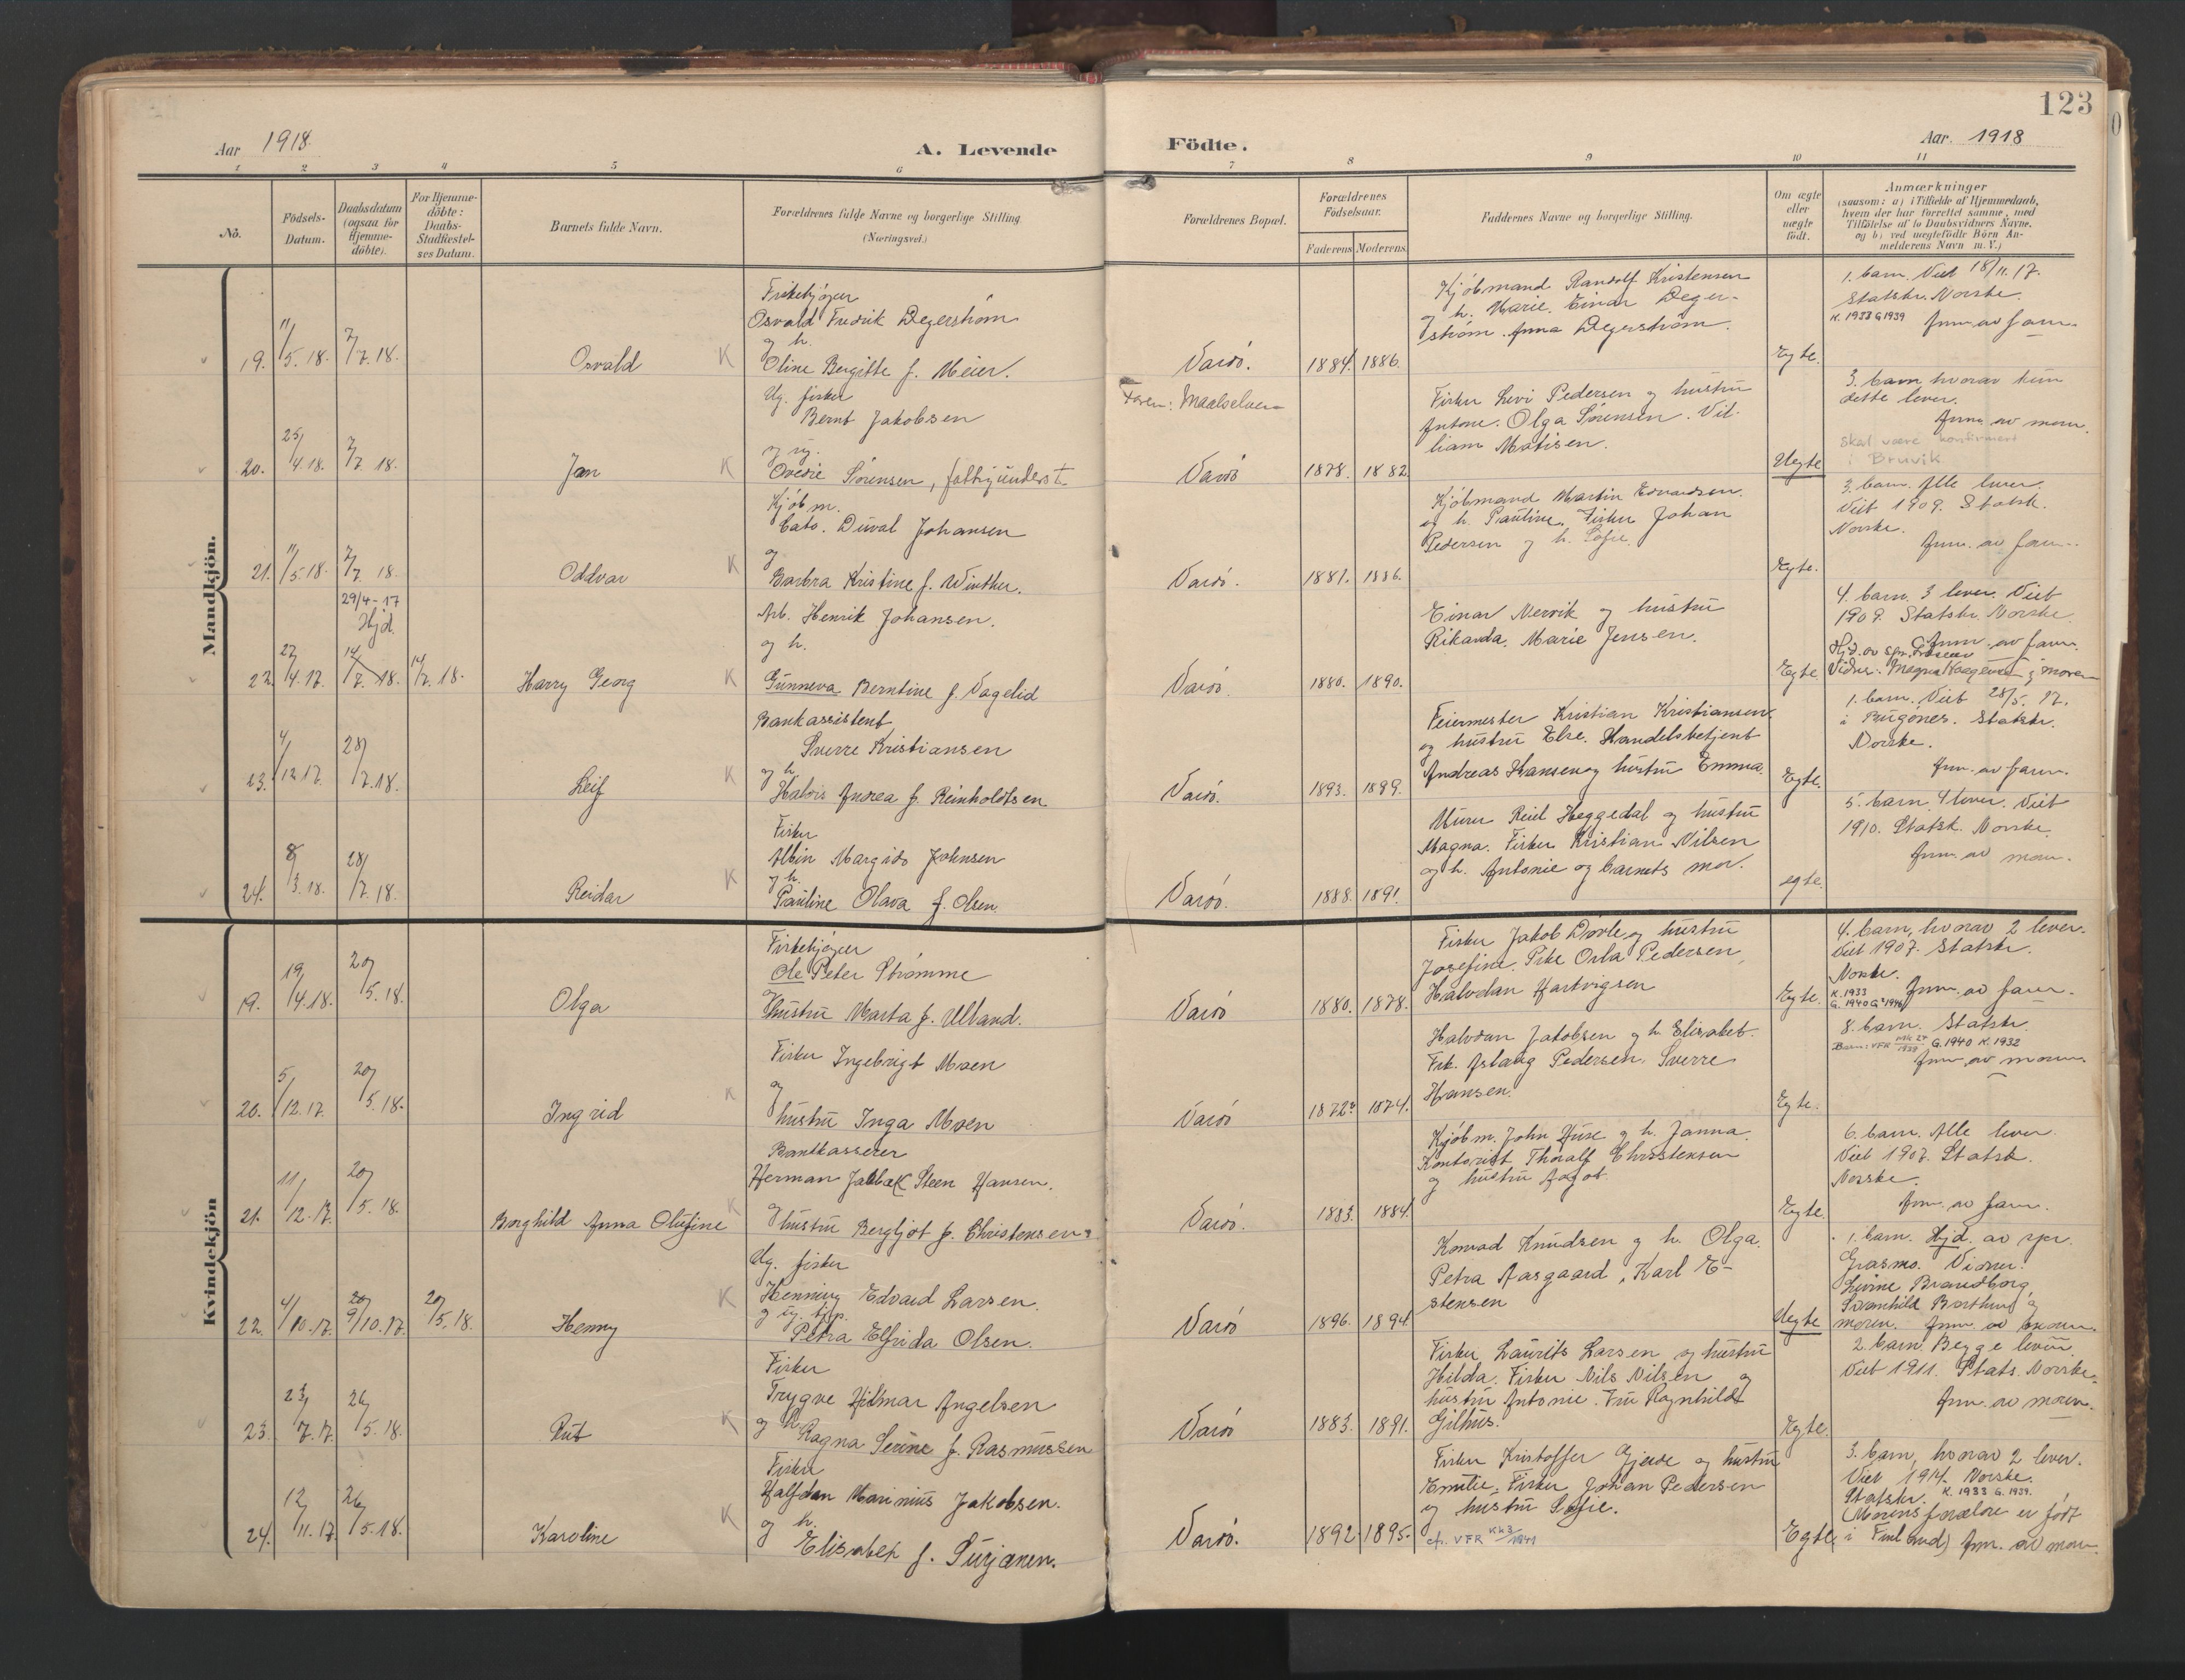 123
Aar 1918.
A. Levende
Födte.
Aar. 1918
1 2 3 4 5 6 7 8 9 10 11
No.
Födsels-Datum.
Daabsdatum (ogsaa for Hjemme-döbte).
For Hjemme-döbte: Daabs-Stadfæstel-ses Datum.
Barnets fulde Navn.
Forældrenes fulde Navne og borgerlige Stilling (Næringsvei.)
Forældrenes Bopæl.
Forældrenes Födselsaar.
Faderens Moderens
Faddernes Navne og borgerlige Stilling.
Om ægte eller uægte födt.
Anmærkninger
(saasom: a) i Tilfælde af Hjemmedaab,
hvem der har forrettet samme, med
Tilföielse af to Daabsvidners Navne.
og b) ved uægtefödte Börn An-
melderens Navn m. V.)
Mandkjön.
19. 11/5. 18. 7/7. 18. Osvald K
Fiskekjøper
Osvald Fredrik Degerstrøm
og h.
Oline Bergitte f. Meier.
Vardö. 1884. 1886.
Kjöbmand Randolf Kristensen
og h. Marie. Einar Deger-
ström. Anna Degerström.
Egte.
1. barn. Viet 18/11. 17.
Statskr. Norske.
K. 1933 G 1939 Anm. av faren.
20. 25/4. 18. 7/7. 18. Jan K
Ug. fisker
Bernt Jakobsen
og ug.
Ovedie Sørensen,
Faren: Maalselven
Vardö 1878. 1882
Fisker Levi Pedersen og hustru
Antone. Olga Sørensen. Vil-
liam Matisen.
Uegte
3. barn hvorav kun
dette lever.
Anm. av moren.
skal være konfirmert
i Bruvik
21. 11/5. 18. 7/7. 18. Oddvar K
Kjöbm.
Cato. Duval Johansen
og
Barbra Kristine f. Winther.
Vardö. 1881. 1886.
Kjöbmand Martin Edvardsen.
og h. Pauline. Fisker Johan
Pedersen og h. Sofie.
Egte.
3. barn. Alle lever.
Viet 1909. Statsk.
Norske.
Anm. av faren.
22. 27/4. 17. 29/4-17 Hjd. 14/7. 18. 14/7. 18. Harry Georg K
Arb. Henrik Johansen.
og h.
Gunneva Berntine f. Vagelid
Vardö. 1880. 1890.
Einar Nervik og hustru
Rikarda. Marie Jensen.
Egte
4. barn. 3 lever. Viet
1909. Statskr. Norske.
Anm. av faren.
Hjd. av spr.
Vidner: Magna Haagensen og moren
23. 4/12. 17. 28/7. 18. Leif K
Bankassistent
Sverre Kristiansen
og h.
Andrea f. Reinholdtsen
Vardö. 1893. 1899.
Feiermester Kristian Kristiansen
og hustru Else. Handelsbetjent
Andreas Hansen og hustru Emma.
Egte.
1. barn. Viet 28/5. 17.
i Bugönes. Statskr.
Norske.
Anm. av faren.
24. 8/3. 18. 28/7. 18. Reidar K
Fisker
Albin Margido Johnsen
og h.
Pauline Olava f. Olsen.
Vardö. 1888. 1891.
Murer Reiel Heggedal og hustru
Magna. Fisker Kristian Nilsen
og h. Antonie og barnets mor.
egte.
5. barn, 4 lever. Viet
1910. Statsk. Norske.
Anm. av moren.
Kvindekjön
19. 19/4. 18. 20/5. 18. Olga
Fiskekjøper
Ole Peter Strømme
og
hustru Marta f. Ulland.
Vardö 1880. 1878.
Fisker Jakob Dørle og hustru
Josefine. Pike Orla Pedersen,
Halvdan Hartvigsen
Egte.
4. barn, hvorav 2 lever.
Viet 1907. Statskr.
Norske.
K. 1933 G. 1940 Anm. av faren.
20. 5/12. 17. 20/5. 18. Ingrid K
Fisker Ingebrigt Moen
og
hustru Inga Moen
Vardö 1872. 1874.
Halvdan Jakobsen og h. Elisabet.
Frk. Aslaug Pedersen. Sverre
Hansen.
Egte.
8. barn. Statskr.
G. 1940 K. 1932
Anm. av moren.
21. 11/12. 17. 20/5. 18. Borghild Anna Olufine K
Bankkasserer
Herman Steen Hansen.
og
hustru Bergljot f. Christensen.
Vardö. 1883. 1884.
Kjöbm. John Huse og h. Janna.
Kontorist Thoralf Christensen
og hustru Aagot.
Egte.
6. barn. Alle lever.
Viet 1907. Statsk.
Norske.
Anm. av faren.
22. 4/10. 17. 9/10. 17. 20/5. 18. Henny K
Ug. fisker
Henning Edvard Larsen.
og ug. tjp.
Petra Elfrida Olsen.
Vardö 1896. 1894
Konrad Knudsen og h. Olga.
Petra Aasgaard, Karl E-
stensen
Uegte
1. barn. Hjd. av spr.
Grasmo. Vidner:
Brandborg,
Svanhild Barthus og
moren. Anm. av moren.
23. 23/7. 17. 26/5. 18. Rut K
Fisker
Trygve Hilmar Angelsen
og h.
Ragna Serine f. Rasmussen
Vardö 1883. 1891.
Fisker Laurits Larsen og hustru
Hilda. Fisker Nils Nilsen og
hustru Antonie. Fru Ragnhild
Gilhus.
Egte.
2. barn. Begge lever.
Viet 1911. Stats. Norske.
Anm. av moren.
24. 12/11. 17. 26/5. 18. Karoline K
Fisker
Halfdan Marinius Jakobsen.
og h.
Elisabet f. Surjanen.
Vardö. 1892 1895.
Fisker Kristoffer Gjerde og hustru
Emilie. Fisker Johan Pedersen
og hustru Sofie.
cfr. VFR
Egte
3. barn, hvorav 2 lever.
Viet 1914. Norske.
Statskr. K. 1933 G. 1939.
(Morens forældre er født
i Finland) Anm. av moren.